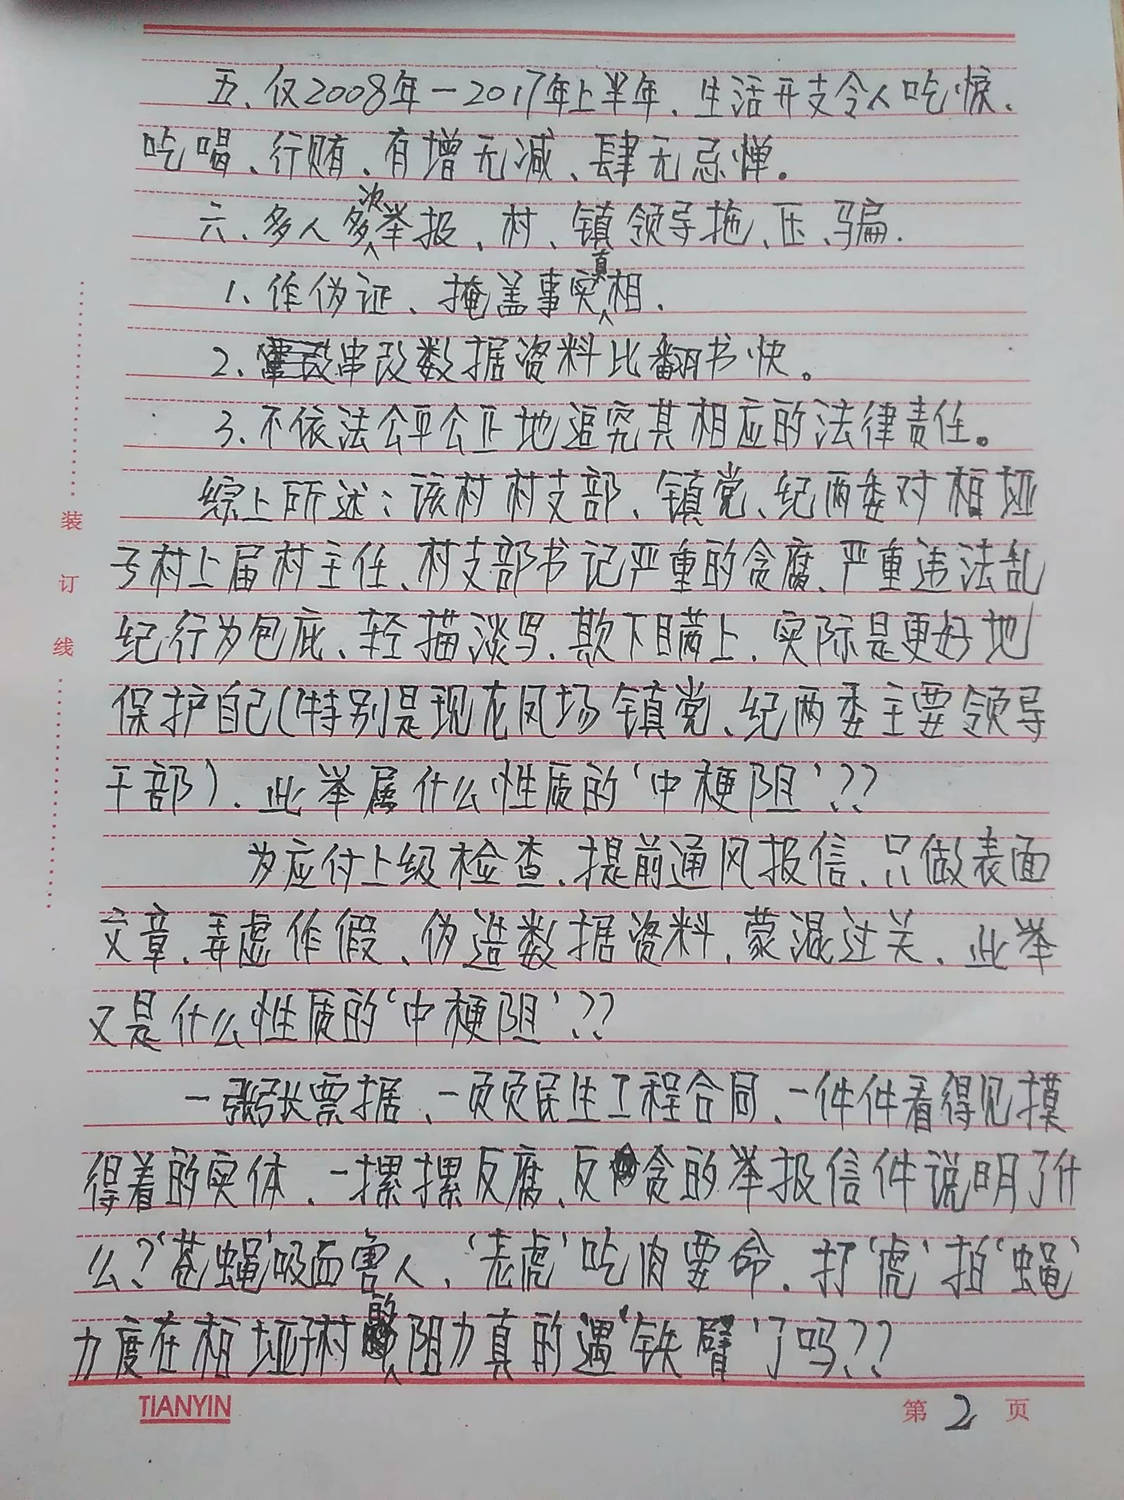 五、仅2008年—2017年上半年、生活开支令人吃惊、
吃喝、行贿、有增无减、肆无忌惮。
六、多人多次举报、村、镇领导拖、压、骗.
1、作伪证、掩盖事实真相.
2、串改数据资料比翻书快。
3、不依法公平公正地追究其相应的法律责任。
综上所述:该村村支部、镇党、纪两委对柏垭
子村上届村主任、村支部书记严重的贪腐、严重违法乱
纪行为包庇、轻描淡写、欺下瞒上、实际是更好地
保护自己(特别是现龙凤场镇党、纪两委主要领导
干部)、此举属什么性质的‘中梗阻’??
为应付上级检查、提前通风报信、只做表面
文章、弄虚作假、伪造数据资料、蒙混过关、此举
又是什么性质的‘中梗阻’??
一张张票据、一页页民生工程合同、一件件看得见摸
得着的实体、一摞摞反腐、反贪的举报信件说明了什
么?‘苍蝇’吸血害人、‘老虎’吃肉要命、打‘虎’拍‘蝇’
力度在柏垭子村的阻力真的遇‘铁臂’了吗??
装
订
线
TIANYIN
第2页